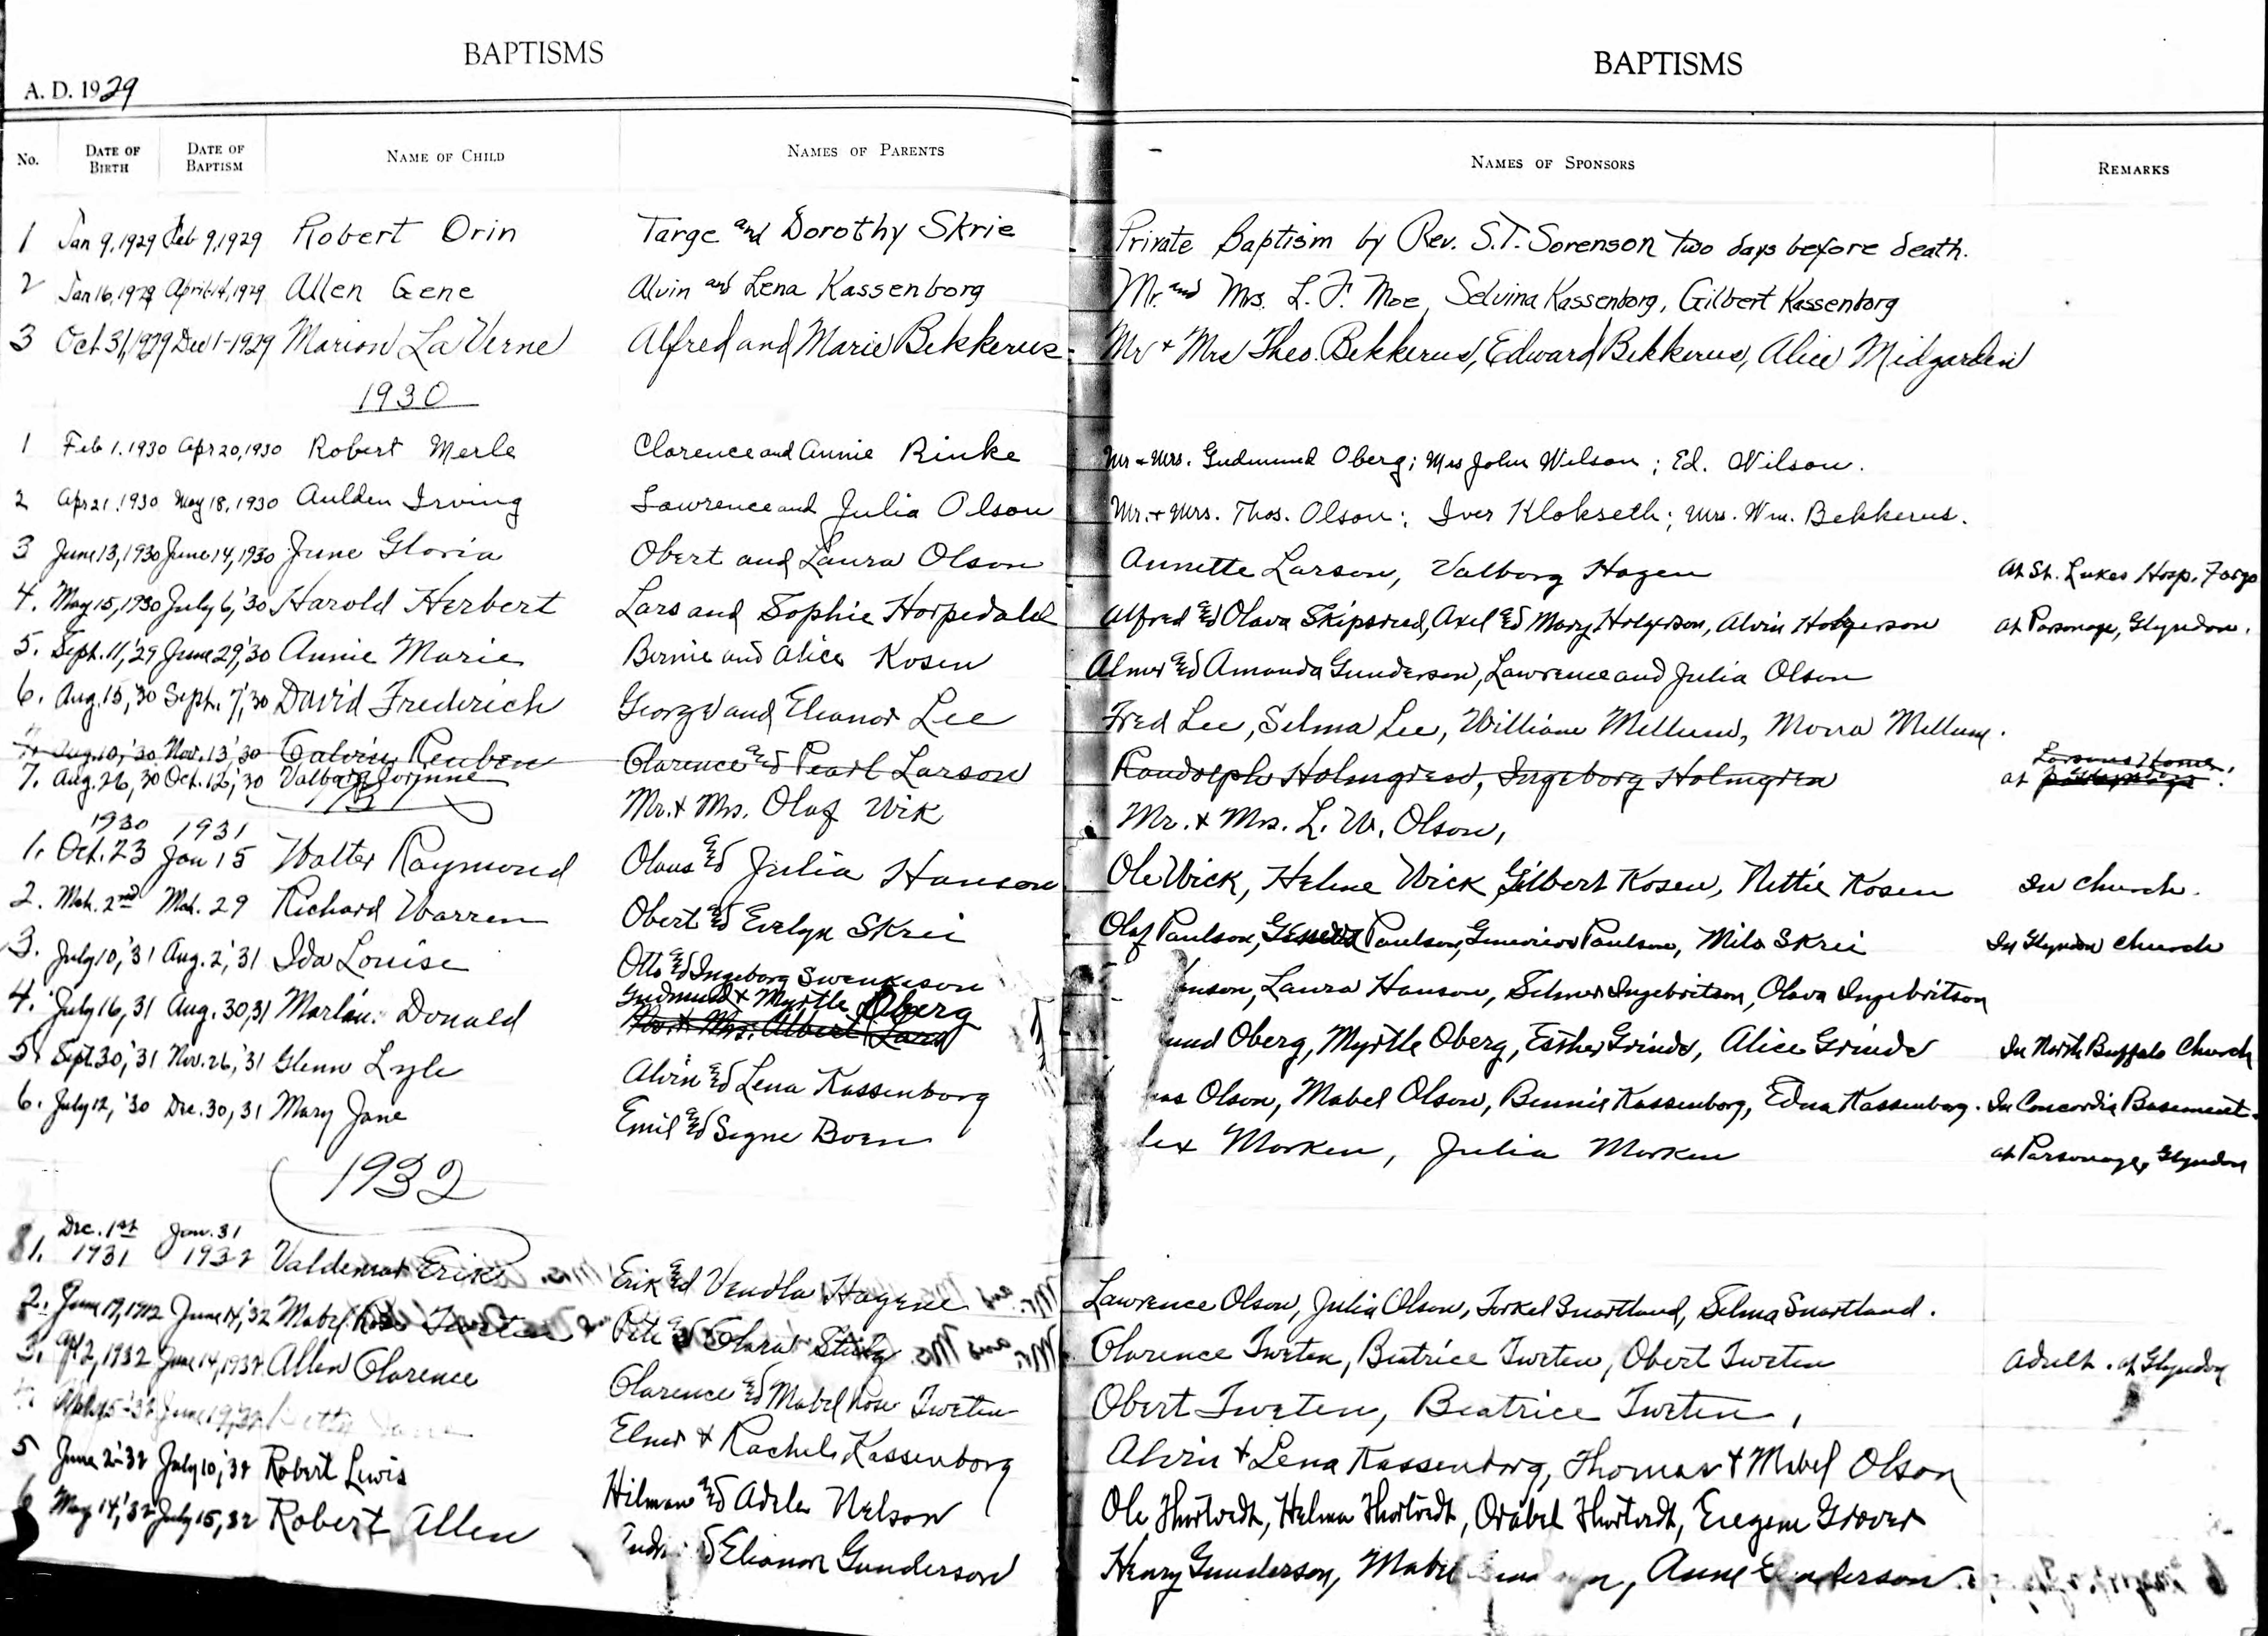 BAPTISMS
A. D. 1929
No. DATE OF BIRTH DATE OF BAPTISM NAME OF CHILD NAMES OF PARENTS
1 Jan 9, 1929 Feb 9, 1929 Robert Orin Targe and Dorothy Skrie
2 Jan 16, 1929 April 14, 1929 Allen Gene Alvin and Lena Kassenborg
3 Oct 31, 1929 Dec 1-1929 Marion LaVerne Alfred and Marie Bekkerus
1930
1 Feb 1. 1930 Apr 20, 1930 Robert Merle Clarence and Annie Rinke
2 Apr 21. 1930 May 18, 1930 Aulden Irving Lawrence and Julia Olson
3 June 13, 1930 June 14, 1930 June Gloria Obert and Laura Olson
4. May 15, 1930 July 6, '30 Harold Herbert Lars and Sophie Horpedahl
5. Sept. 11, '29 June 29, '30 Annie Marie Bernie and Alice Kosen
6. Aug. 15, '30 Sept. 7, '30 David Frederich George and Eleanor Lee
7. Aug. 10, '30 Nov. 13, '30 Calvin Reuben Clarence and Pearl Larson
7. Aug. 26, 30 Oct. 12, '30 Valborg Corynne Mr. & Mrs. Olaf Wik
1930 1931
1. Oct. 23 Jan 15 Walter Raymond Olaus and Julia Hanson
2. Mch. 2nd Mch. 29 Richard Warren Obert and Evelyn Skrei
3. July 10, '31 Aug. 2, '31 Ida Louise Otto and Ingeborg Swenkeson
Gudmund & Myrtle Oberg
4. July 16, 31 Aug. 30, 31 Marlin Donald Mr. & Mrs. Albert
5. Sept 30, '31 Nov. 26, '31 Glenn Lyle Alvin and Lena Kassenborg
6. July 12, '30 Dec. 30, 31 Mary Jane Emil and Signe Boen
1932
Dec. 1st Jan. 31
1. 1931 1932 Valdemar Erik Erik and Vendla Hagene
2. June 14, '32 Mabel Rose Tweten Pete and Clara
3. Apr 2, 1932 June 14, 1932 Allen Clarence Clarence and Mabel Rose Tweten
Elmer & Rachel Kassenborg
5 June 2-32 July 10, '32 Robert Lewis Hilman and Adele Nelson
6 May 14, '32 July 15, 32 Robert Allen Elianor Gunderson
BAPTISMS
NAMES OF SPONSORS REMARKS
Private Baptism by Rev. S. T. Sorenson two days before death.
Mr. and Mrs. L. F. Moe, Selvina Kassenborg, Gilbert Kassenborg
Mr & Mrs Theo. Bekkerus, Edward Bekkerus, Alice Midgarden
Mr & Mrs. Gudmund Oberg; Mrs John Wilson; Ed. Wilson.
Mr. & Mrs. Thos. Olson; Iver Klokseth; Mrs. Wm. Bekkerus.
Annette Larson, Valborg Hagen At St. Lukes Hosp. Fargo
Alfred and Olava Skipsrud, Axel and Mary Holgerson, Alvin Holgerson At Parsonage, Glyndon.
Almer and Amanda Gunderson, Lawrence and Julia Olson
Fred Lee, Selma Lee, William Mellum, Morra Mellum.
Randolph Holmgren, Ingeborg Holmgren at Larsons Home.
Mr. & Mrs. L. W. Olson,
Ole Wick, Helene Wick, Gilbert Kosen, Nettie Kosen In church.
Olaf Paulson, Paulson, Genevieve Paulson, Milo Skrei In Glyndon church
Laura Hanson, Selmer Ingebritson, Olava Ingebritson
Oberg, Myrtle Oberg, Esther Grinde, Alice Grinde In North Buffalo Church
Olson, Mabel Olson, Bennie Kassenborg, Edna Kassenborg. In Concordia Basement.
Morken, Julia Morken At Parsonage, Glyndon
Lawrence Olson, Julia Olson, Torkel Snortland, Selma Snortland.
Clarence Tweten, Beatrice Tweten, Obert Tweten Adult. at Glyndon
Obert Tweten, Beatrice Tweten,
Alvin & Lena Kassenborg, Thomas & Mabel Olson
Ole Thortvedt, Helma Thortvedt, Orabel Thortvedt, Eugene Grover
Henry Gunderson, Mabel Anne